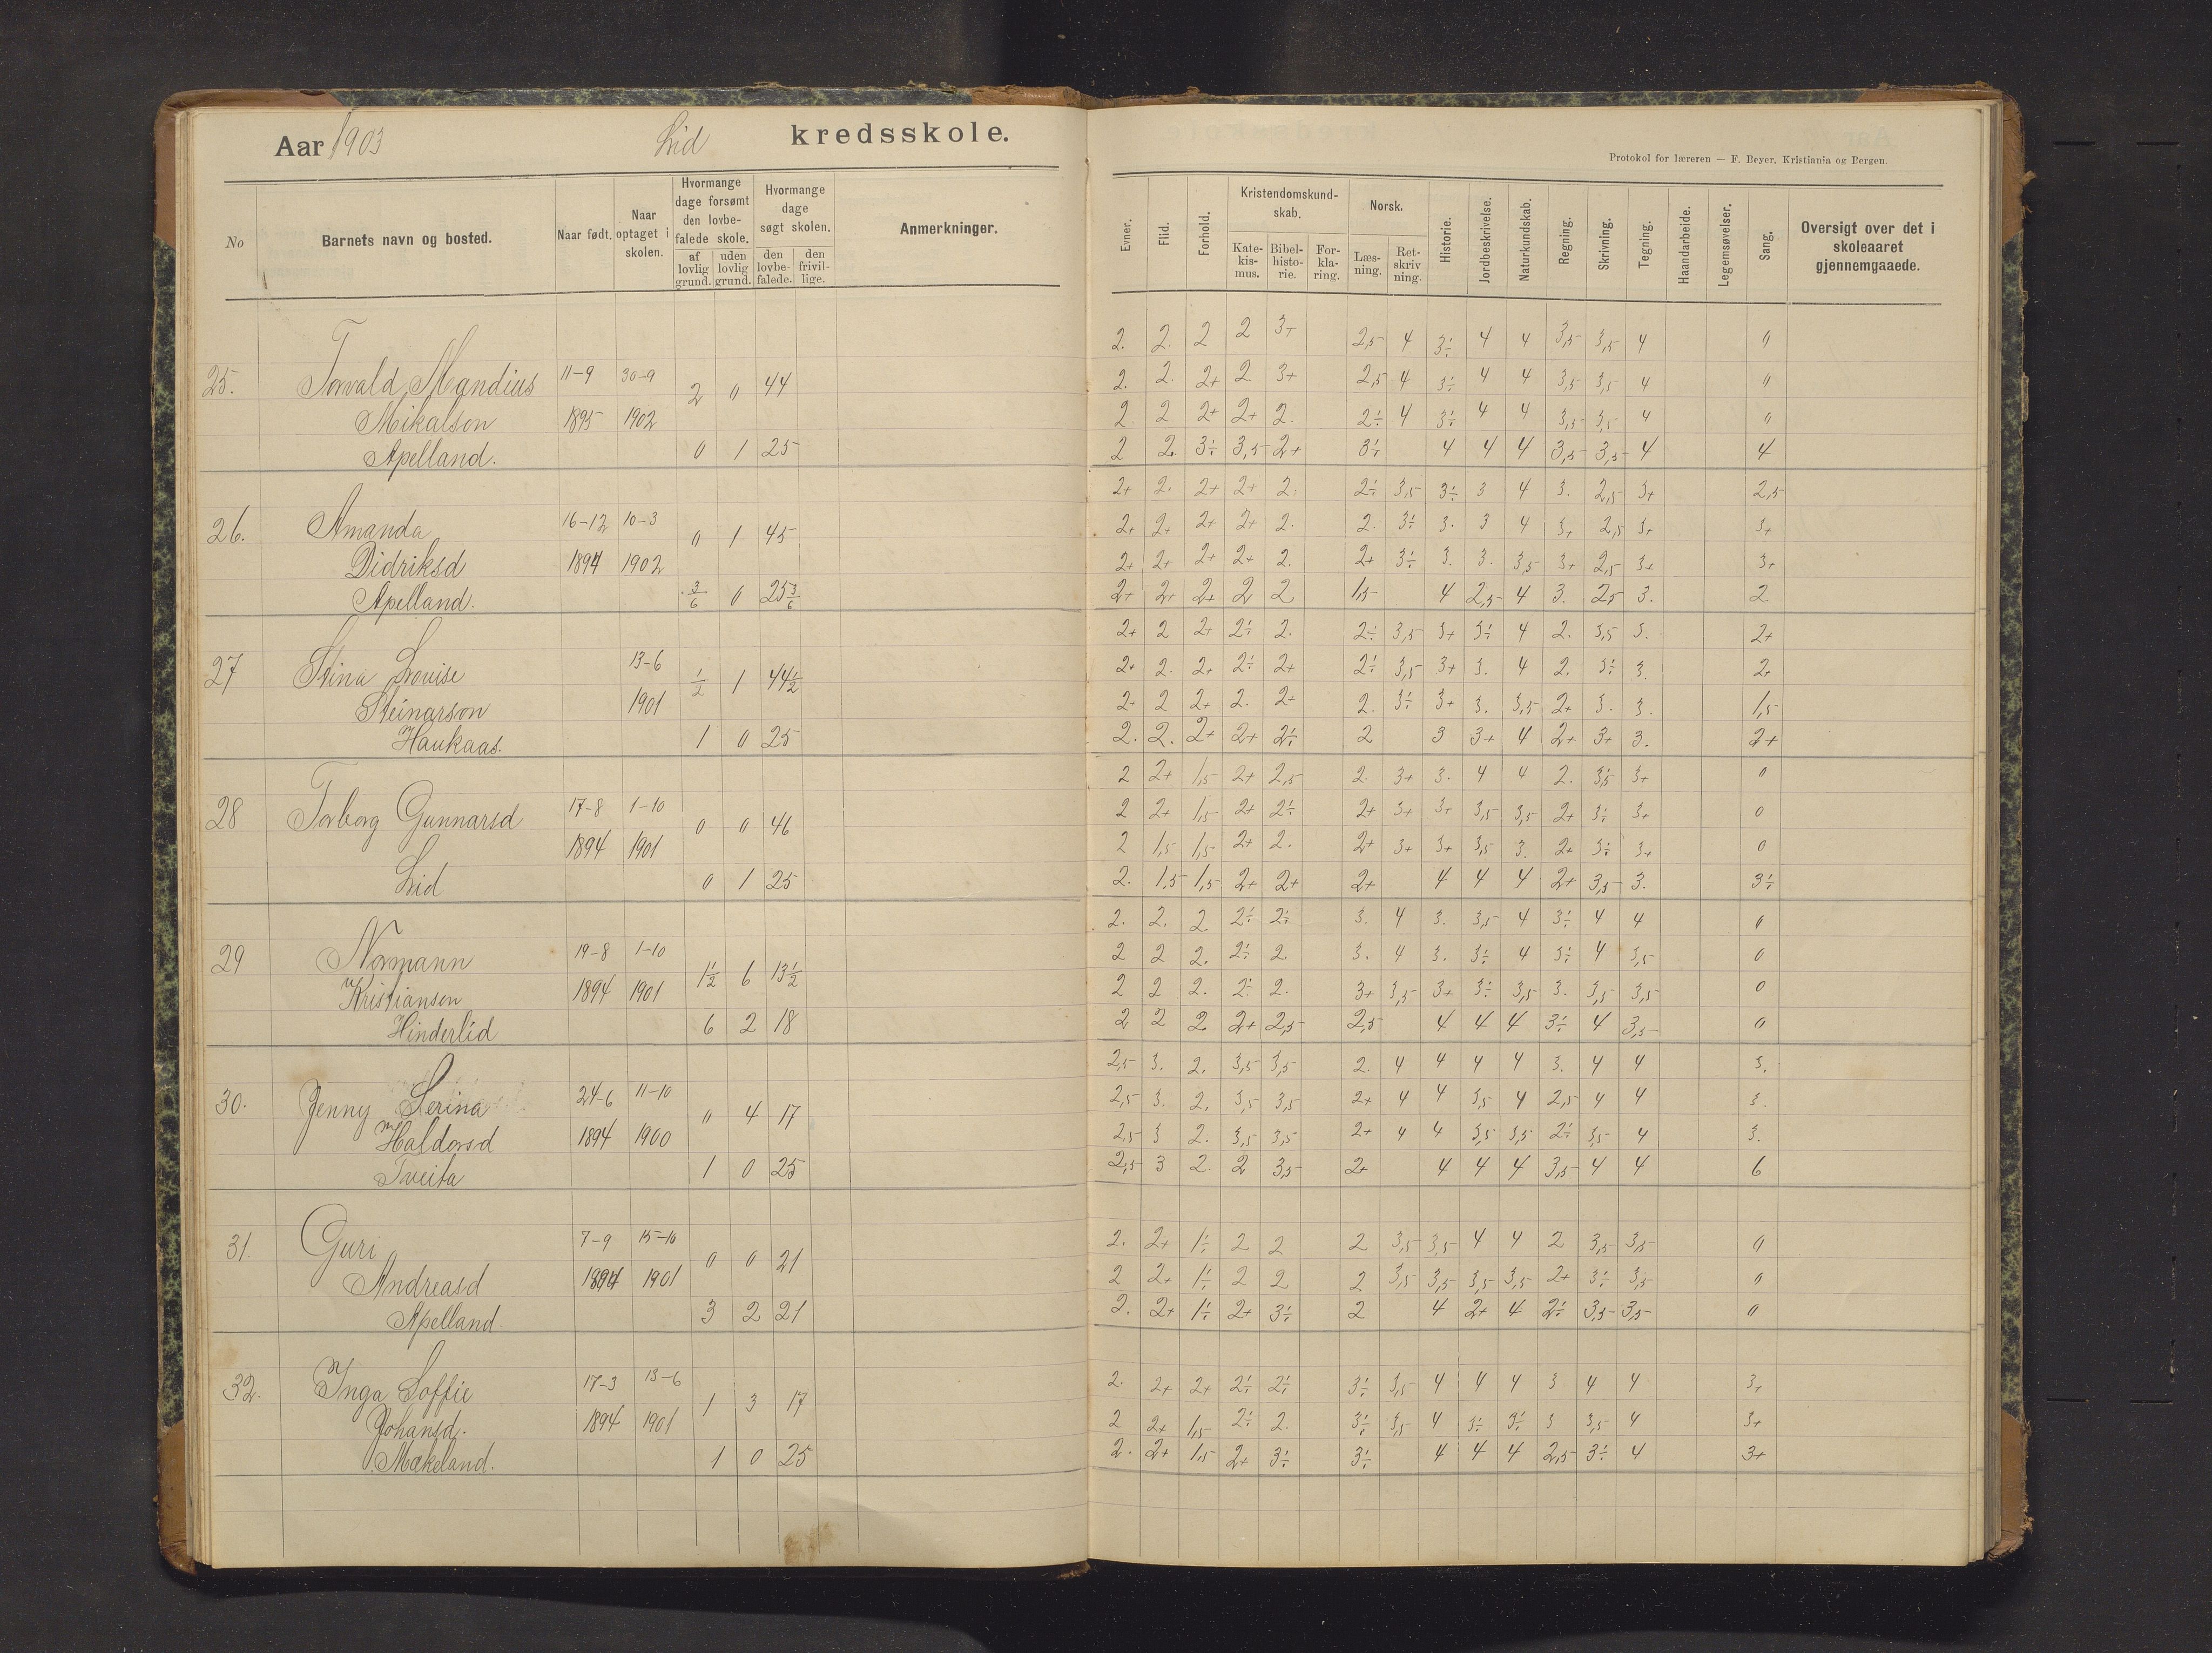 Aar 1903 Lid kredsskole.
Protokol for læreren — F. Beyer, Kristiania og Bergen.
No
Barnets navn og bosted.
Naar født.
Naar optaget i skolen.
Hvormange dage forsømt den lovbefalede skole.
af lovlig grund.
uden lovlig grund.
Hvormange dage søgt skolen.
den lovbefalede.
den frivillige.
Anmerkninger.
Evner.
Flid.
Forhold.
Kristendomskundskab.
Katekismus.
Bibelhistorie.
Forklaring.
Norsk.
Læsning.
Retskrivning.
Historie.
Jordbeskrivelse.
Naturkundskab.
Regning.
Skrivning.
Tegning.
Haandarbeide.
Legemsøvelser.
Sang.
Oversigt over det i skoleaaret gjennemgaaede.
2. 2. 2 2 3+ 2,5 4 3÷ 4 4 3,5 3,5 4 0
25. Torvald Mandius 11-9 30-9 2 0 44 2. 2. 2+ 2 3+ 2,5 4 3÷ 4 4 3,5 3,5 4 0
Mikalson 1895 1902 2 2 2+ 2+ 2. 2÷ 4 3÷ 4 4 3,5 3,5 4 0
Apelland. 0 1 25 2 2. 3÷ 3,5 2+ 3÷ 4 4 4 3,5 3,5 4 4
2+ 2. 2+ 2+ 2. 2÷ 3,5 3÷ 3 4 3. 2,5 3+ 2,5
26. Amanda 16-12 10-3 0 1 45 2+ 2+ 2+ 2+ 2. 2. 3÷ 3. 3 4 3+ 2,5 3+ 3+
Didriksd 1894 1902 2+ 2+ 2+ 2+ 2. 2+ 3÷ 3. 3. 3,5 3+ 2,5 3+ 3+
Apelland. 3/6 0 25 3/6 2+ 2+ 2+ 2 2 1,5 4 2,5 4 3. 2,5 3. 2.
2+ 2 2+ 2÷ 2. 2÷ 3,5 3+ 3÷ 4 2. 3,5 3. 2+
27 Stina Lovise 13-6 1/2 1 44 1/2 2+ 2. 2+ 2÷ 2+ 2÷ 3,5 3+ 3. 4 2. 3÷ 3. 2+
Steinarson 1901 2+ 2 2+ 2. 2+ 2. 3÷ 3+ 3. 3,5 2+ 3. 3. 1,5
Haukaas. 1 0 25 2. 2. 2+ 2+ 2÷ 2 3 3+ 4 2+ 3+ 3. 2+
2 2+ 1,5 2+ 2,5 2. 3+ 3. 4 4 2. 3,5 3+ 0
28 Torborg Gunnarsd 17-8 1-10 0 0 46 2 2+ 1,5 2+ 2÷ 2+ 3+ 3+ 3,5 3,5 2+ 3÷ 3+ 0
1894 1901 2 1,5 1,5 2+ 2. 2+ 3+ 3+ 3,5 3. 2+ 3÷ 3+ 0
Lid 0 1 25 2. 1,5 1,5 2+ 2+ 2+ 4 4 4 2+ 3,5 3. 3÷
2. 2. 2 2÷ 2÷ 3. 4 3. 3,5 4 3÷ 4 4 0
29 Normann 19-8 1-10 1 1/2 6 13 1/2 2 2 2. 2÷ 2. 3. 4 3. 3÷ 4 3÷ 4 3,5 0
Kristiansen 1894 1901 2 2 2. 2÷ 2. 3+ 3,5 3+ 3÷ 3,5 3. 3,5 3,5 0
Hinderlid 6 2 18 2 2 2. 2+ 2,5 2,5 4 4 4 3÷ 4 3,5 0
2,5 3. 2. 3,5 3,5 2. 4 4 4 4 3. 4 4 3.
30. Jenny Serina 24-6 11-10 0 4 17 2,5 3. 2. 3,5 3,5 2+ 4 4 3,5 4 2,5 4 4 3.
Haldorsd 1894 1900 2,5 3 2. 3,5 3,5 2+ 4 4 3,5 3,5 2÷ 3,5 4 3.
Tveita 1 0 25 2,5 3 2. 2 3,5 2+ 4 4 4 3,5 4 4 6
31. Guri 7-9 15-10 0 0 21 2. 2+ 1÷ 2 2 2 3,5 3,5 4 4 2 3,5 3,5 0
Andreasd 1894 1901 2 2+ 1÷ 2 2 2 3,5 3,5 3,5 3,5 2+ 3÷ 3,5 0
Apelland. 3 2 21 2. 2+ 1÷ 2+ 3÷ 2 4 2+ 4 2÷ 3,5 3,5 0
32. Inga Soffie 17-3 13-6 1 3 17 2. 2+ 2+ 2÷ 2÷ 3÷ 3,5 4 4 4 3 4 4 3+
Johansd. 1894 1901 2 2+ 1,5 2÷ 2. 3÷ 3,5 4 3÷ 3÷ 3 3,5 4 3+
Mækeland. 1 0 25 2. 2+ 1,5 2+ 3÷ 3÷ 4 4 4 2,5 3÷ 4 3+